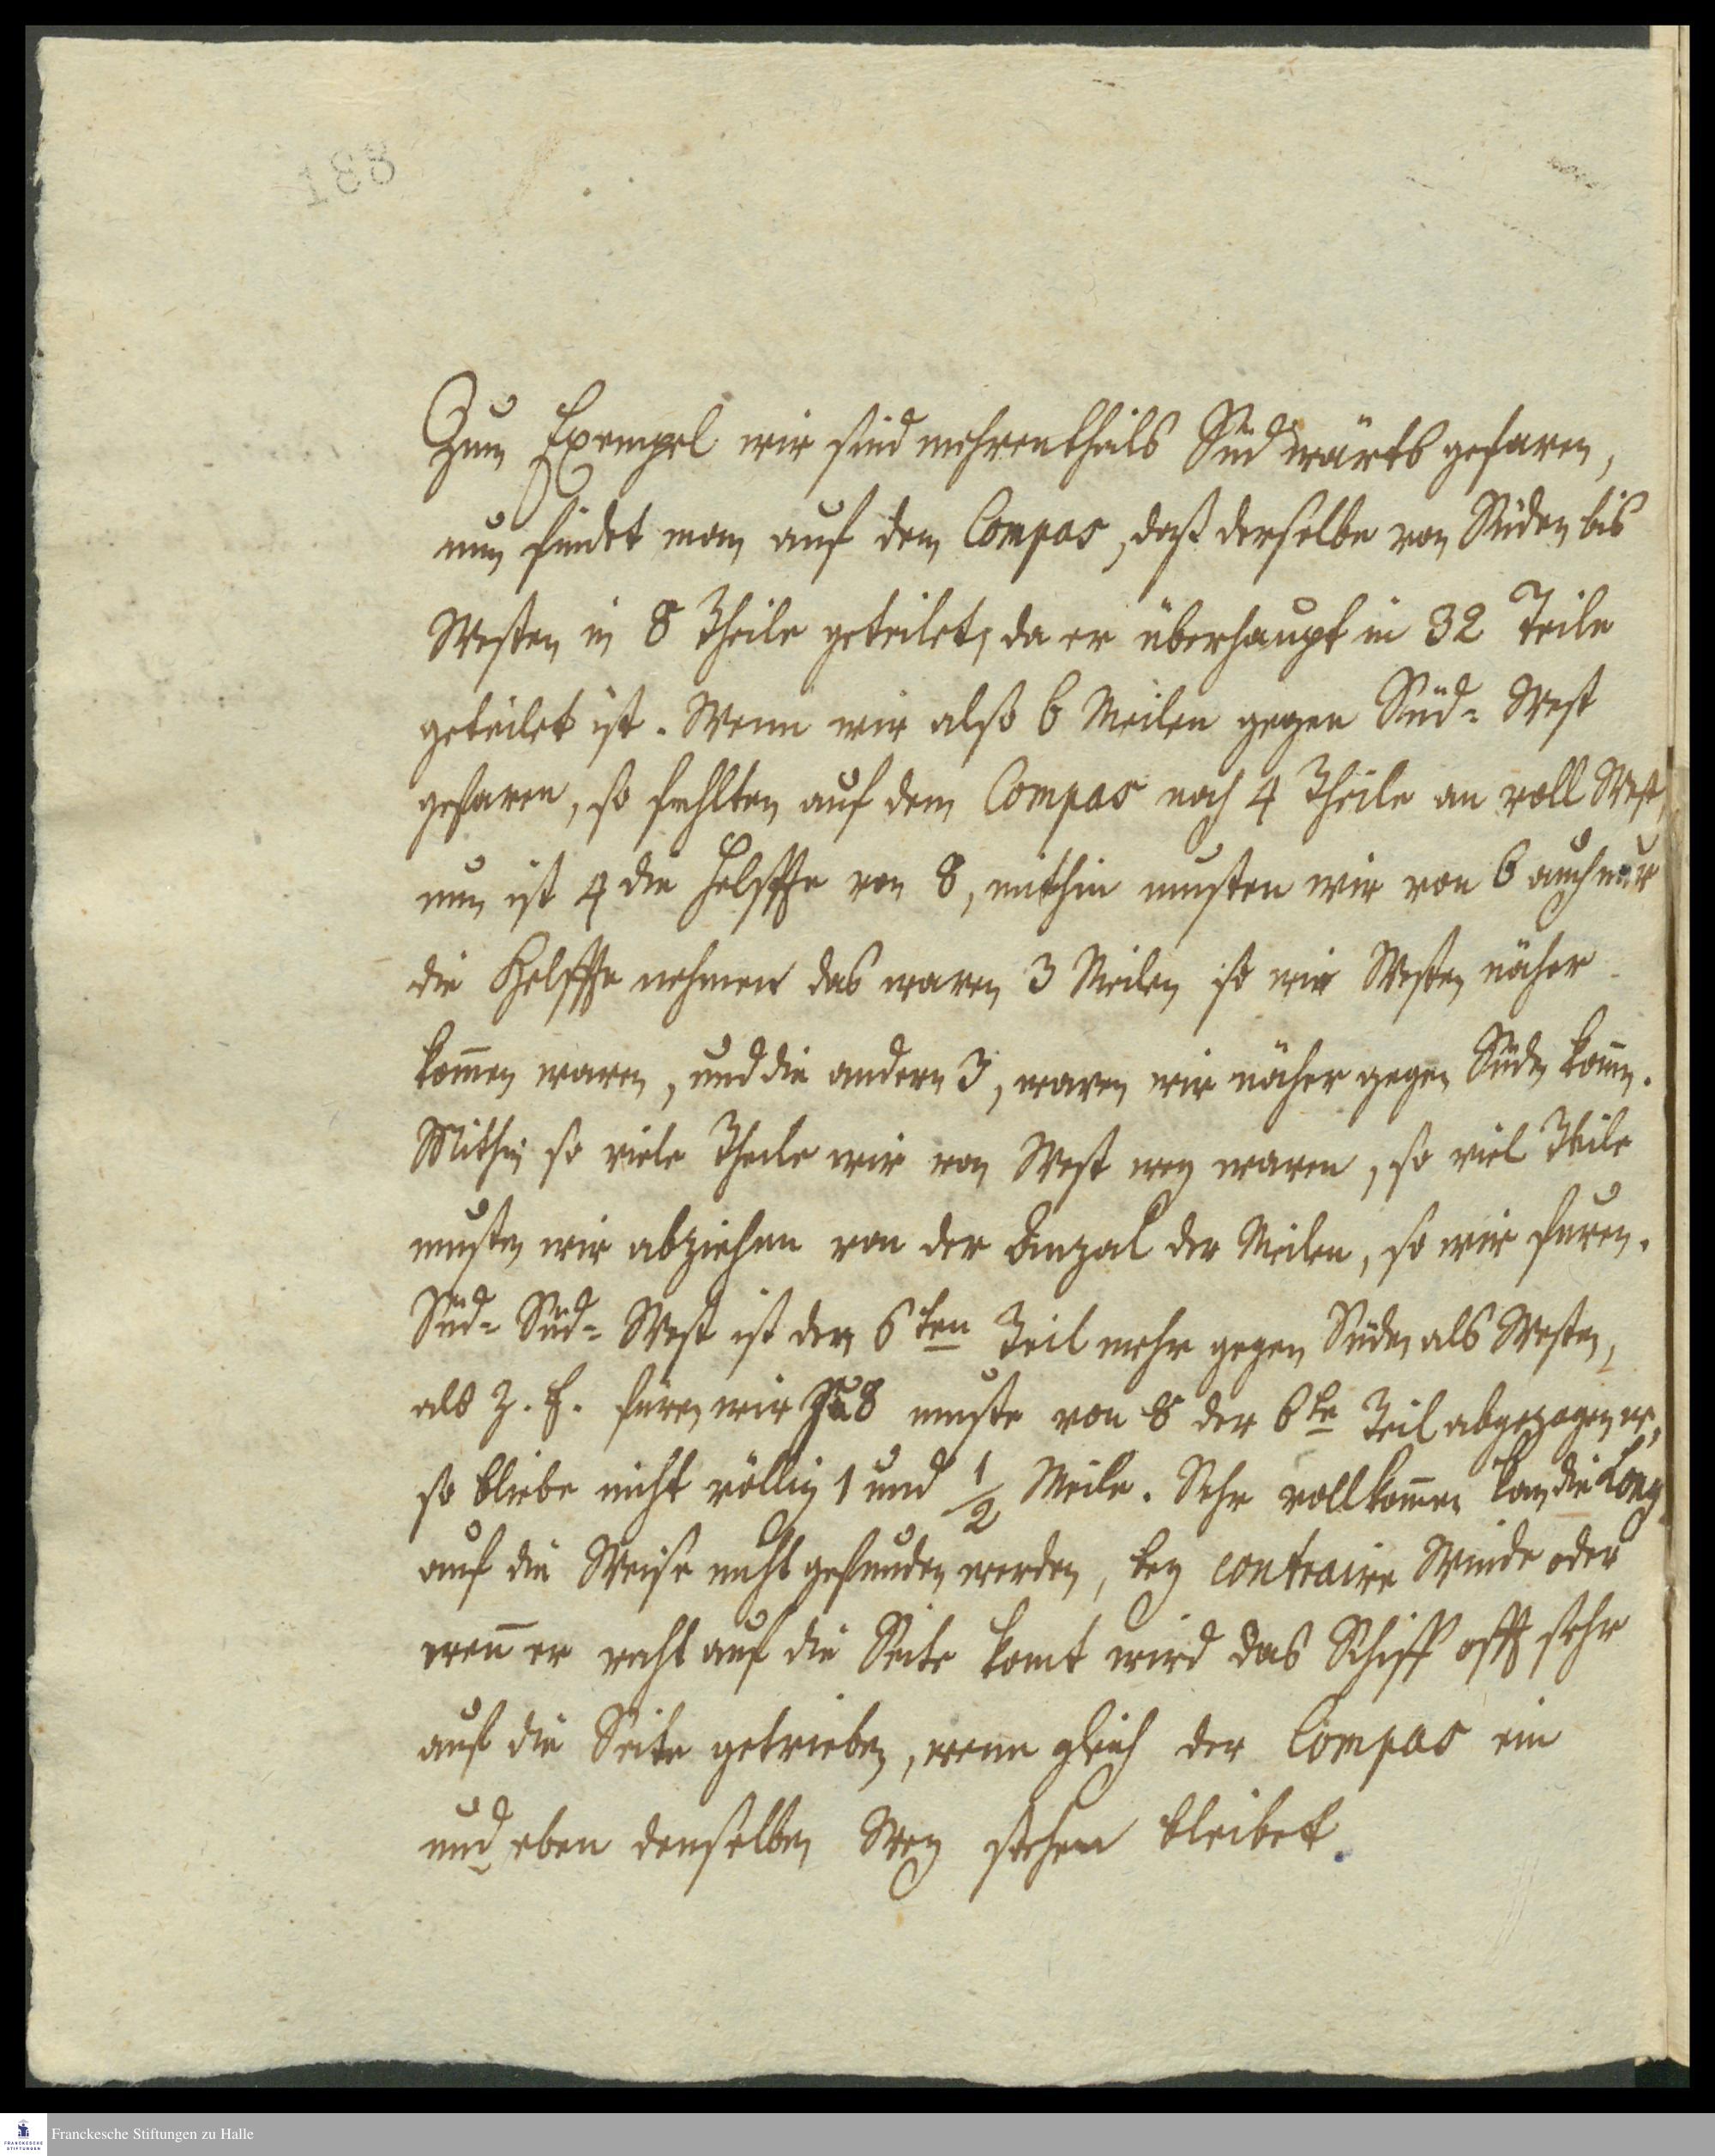 188
Zum Exempel wir sind mehrentheils Südwärts gefaren,
nun findet man auf dem Compas, daß derselbe von Süden bis
Westen in 8 Theile geteilet, da er überhaupt in 32 Teile
geteilet ist. Wenn wir also 6 Meilen gegen Süd-West
gefaren, so fehlten auf dem Compas noch 4 Theile an voll West,
nun ist 4 die Helffte von 8, mithin musten wir von 6 auch nur
die Helffte nehmen das waren 3 Meilen so wir Westen näher
kom̄en waren, und die andern 3, waren wir näher gegen Süden kom̄en.
Mithin so viele Theile wir von West weg waren, so viel Theile
musten wir abziehen von der Anzal der Meilen, so wir furen.
Süd-Süd-West ist der 6ten Teil mehr gegen Süden als Westen,
als z. E. füren wir 8 muste von 8 der 6te Teil abgezogen w,
so bliebe nicht völlig 1 und 1/2 Meile. Sehr vollkom̄en kan die Long
auf die Weise nicht gefunden werden, bey contraire Winde oder
wen̄ er recht auf die Seite komt wird das Schiff offt sehr
auf die Seite getrieben, wenn gleich der Compas ein
und eben denselben Weg stehen bleibet.
Franckesche Stiftungen zu Halle